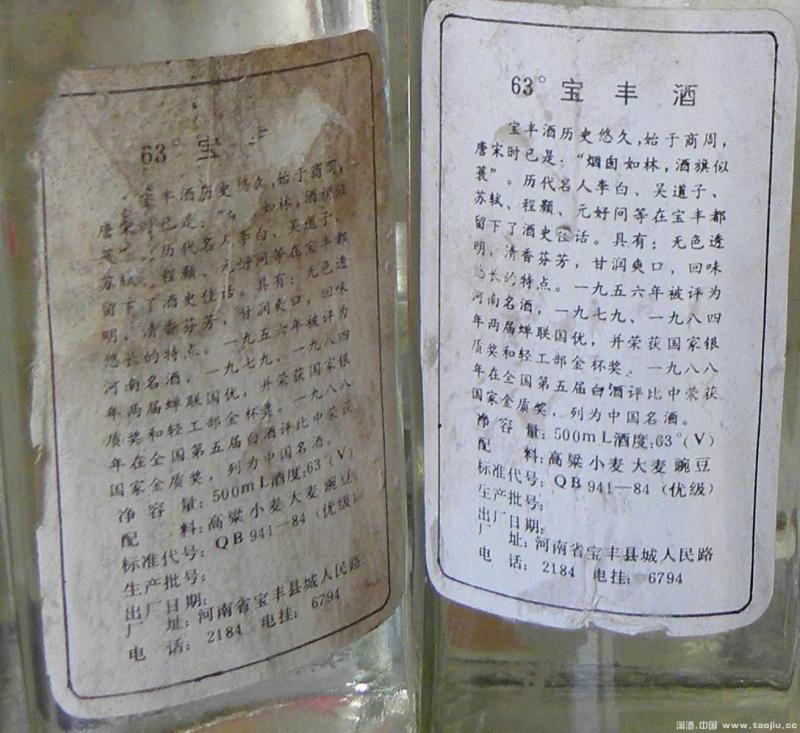 63° 宝
宝丰酒历史悠久,始于商周,
唐宋时已是:“ 如林,酒旗似
。历代名人李白、吴道子、
苏轼、程颢、元好问等在宝丰都
留下了酒史佳话。具有:无色透
明,清香芬芳,甘润爽口,回味
悠长的特点。一九五六年被评为
河南名酒,一九七九、一九八四
年两届蝉联国优,并荣获国家银
质奖和轻工部金杯奖。一九八八
年在全国第五届白酒评比中荣获
国家金质奖,列为中国名酒。
净容量:500mL酒度:63°(V)
配料:高粱小麦大麦豌豆
标准代号:QB941—84(优级)
生产批号:
出厂日期:
厂址:河南省宝丰县城人民路
电话:2184 电挂:6794
63°宝丰酒
宝丰酒历史悠久,始于商周,
唐宋时已是:“烟囱如林,酒旗似
蓑”。历代名人李白、吴道子、
苏轼、程颢、元好问等在宝丰都
留下了酒史佳话。具有:无色透
明,清香芬芳,甘润爽口,回味
悠长的特点。一九五六年被评为
河南名酒,一九七九、一九八四
年两届蝉联国优,并荣获国家银
质奖和轻工部金杯奖。一九八八
年在全国第五届白酒评比中荣获
国家金质奖,列为中国名酒。
净容量:500mL酒度:63°(V)
配料:高粱小麦大麦豌豆
标准代号:QB941—84(优级)
生产批号:
出厂日期:
厂址:河南省宝丰县城人民路
电话:2184 电挂:6794
淘酒.中国 www.taojiu.cc